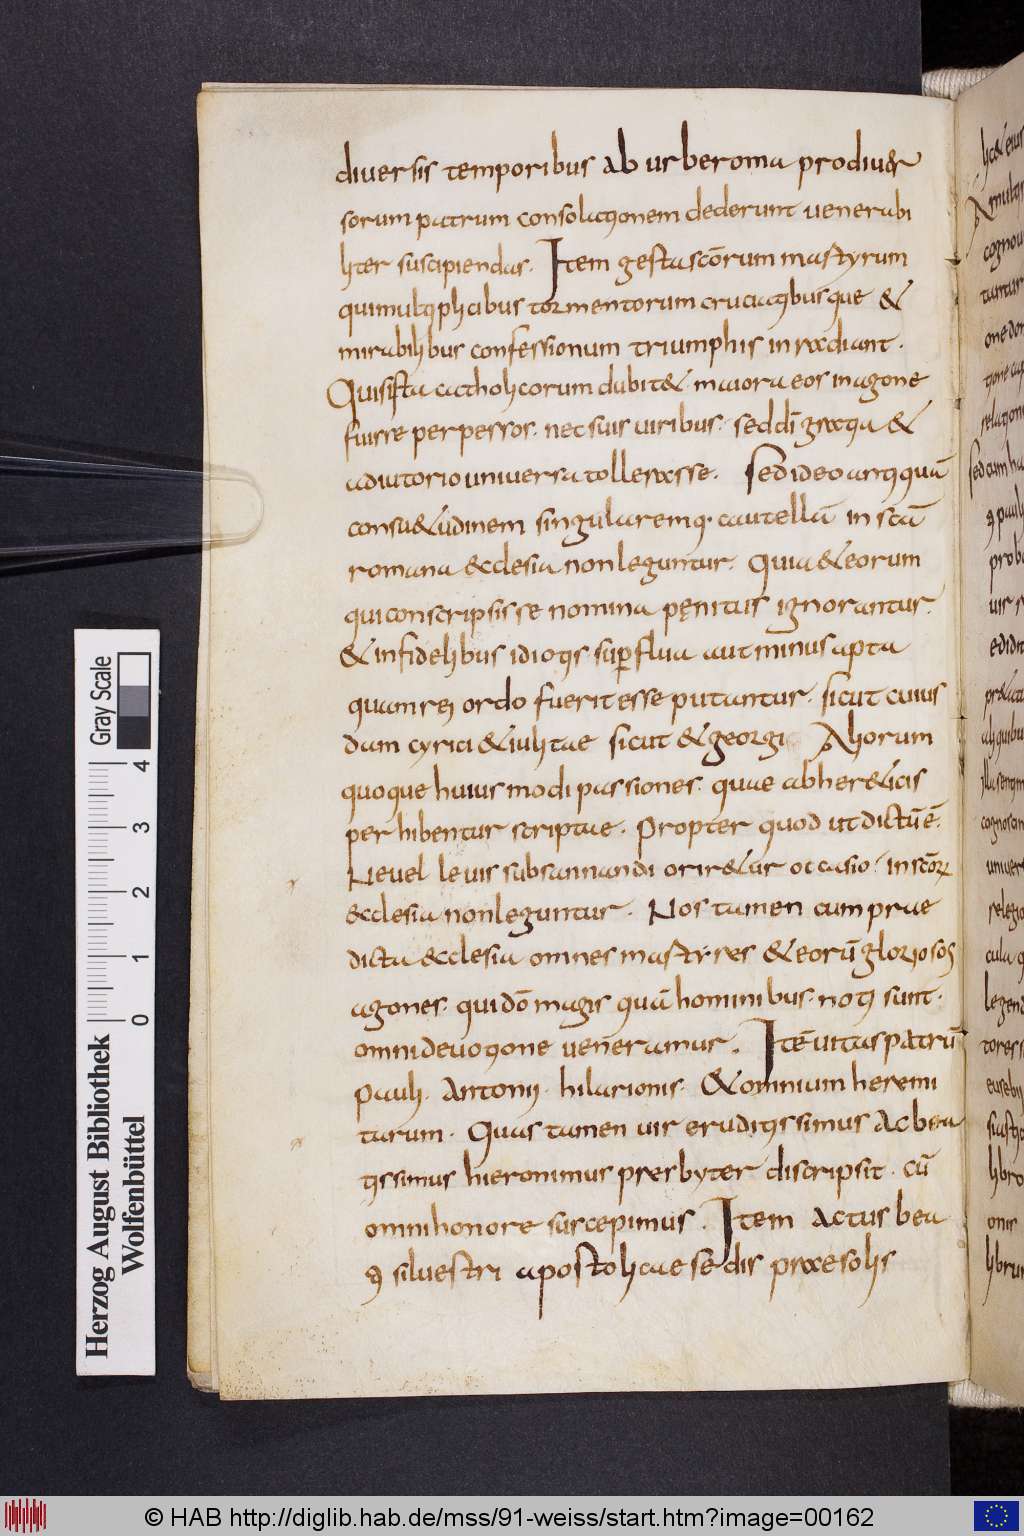 diversis temporibus ab urbe roma pro diu&r
sorum patrum consolationem dederunt uenerabi
liter suscipiendas. Item gesta scōrum martyrum
qui multiplicibus tormentorum cruciatibusque &
mirabilibus confessionum triumphis inradiant.
Quis ista catholicorum dubit& maiora eos in agone
fuisse perpessos. nec suis uiribus. sed dī gratia &
adiutorio uniuersa tollerasse. Sed ideo antiquā
consu&udinem singularemq. cautellā in scā
romana ecclesia non leguntur. Quia & eorum
qui conscripsisse nomina pęnitus ignorantur.
& infidelibus idiotis supflua aut minus apta
quam rei ordo fuerit esse putantur. sicut cuius
dam cyrici & iulitae sicut & georgi Aliorum
quoque huiusmodi passiones. quae ab her&icis
perhibentur scriptae. Propter quod ut dictū ē.
Ne uel leuis subsannandi orir&ur occasio. in scōr
ecclesia non leguntur. Nos tamen cum prae
dicta ecclesia omnes martyres & eorū gloriosos
agones. qui dō magis quā hominibus. noti sunt.
omni deuotione ueneramur. Itē uitas patrū
pauli. Antonii. hilarionis. & omnium heremi
tarum. Quas tamen uir eruditissimus Ac bea
tissimus hieronimus presbyter discripsit. cū
omni honore suscepimus. Item Actus bea
ti siluestri apostolicae sedis praesolis
Gray Scale
4
3
2
1
0
Herzog August Bibliothek
Wolfenbüttel
© HAB http://diglib.hab.de/mss/91-weiss/start.htm?image=00162